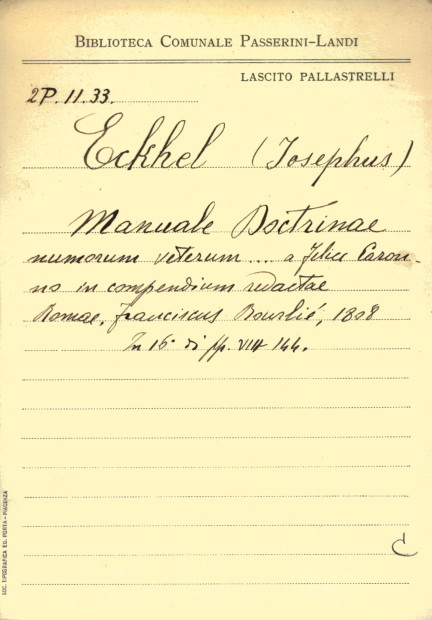 BIBLIOTECA COMUNALE PASSERINI-LANDI
LASCITO PALLASTRELLI
2P.11.33.
Eckhel (Josephus)
Manuale Doctrinae
numorum veterum ... a Felice Caron-
no in compendium redactae
Romae, Franciscus Bourlié, 1808
In 16° di pp. VIII 144.
C
SOC. TIPOGRAFICA ED. PORTA - PIACENZA